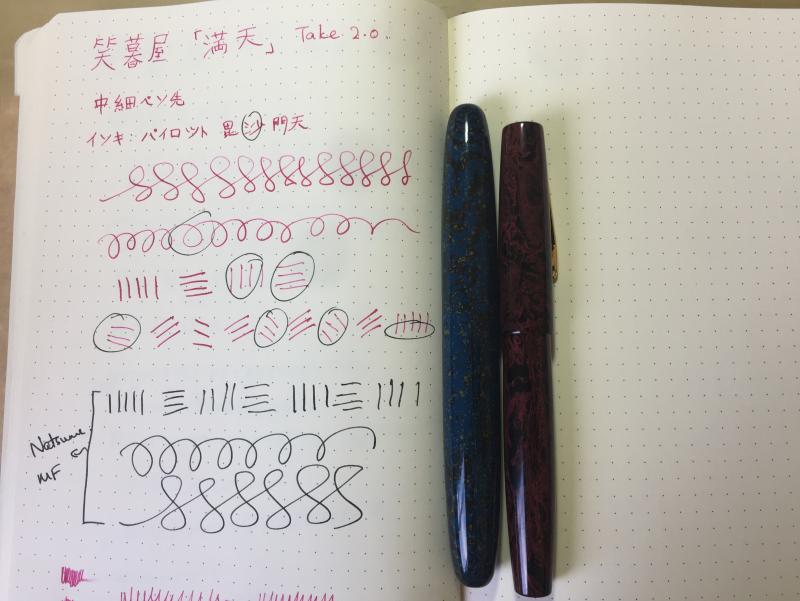 笑暮屋「満天」 Take 2.0.
中細ペン先
インキ: パイロット 毘沙門天
Natsume
MF